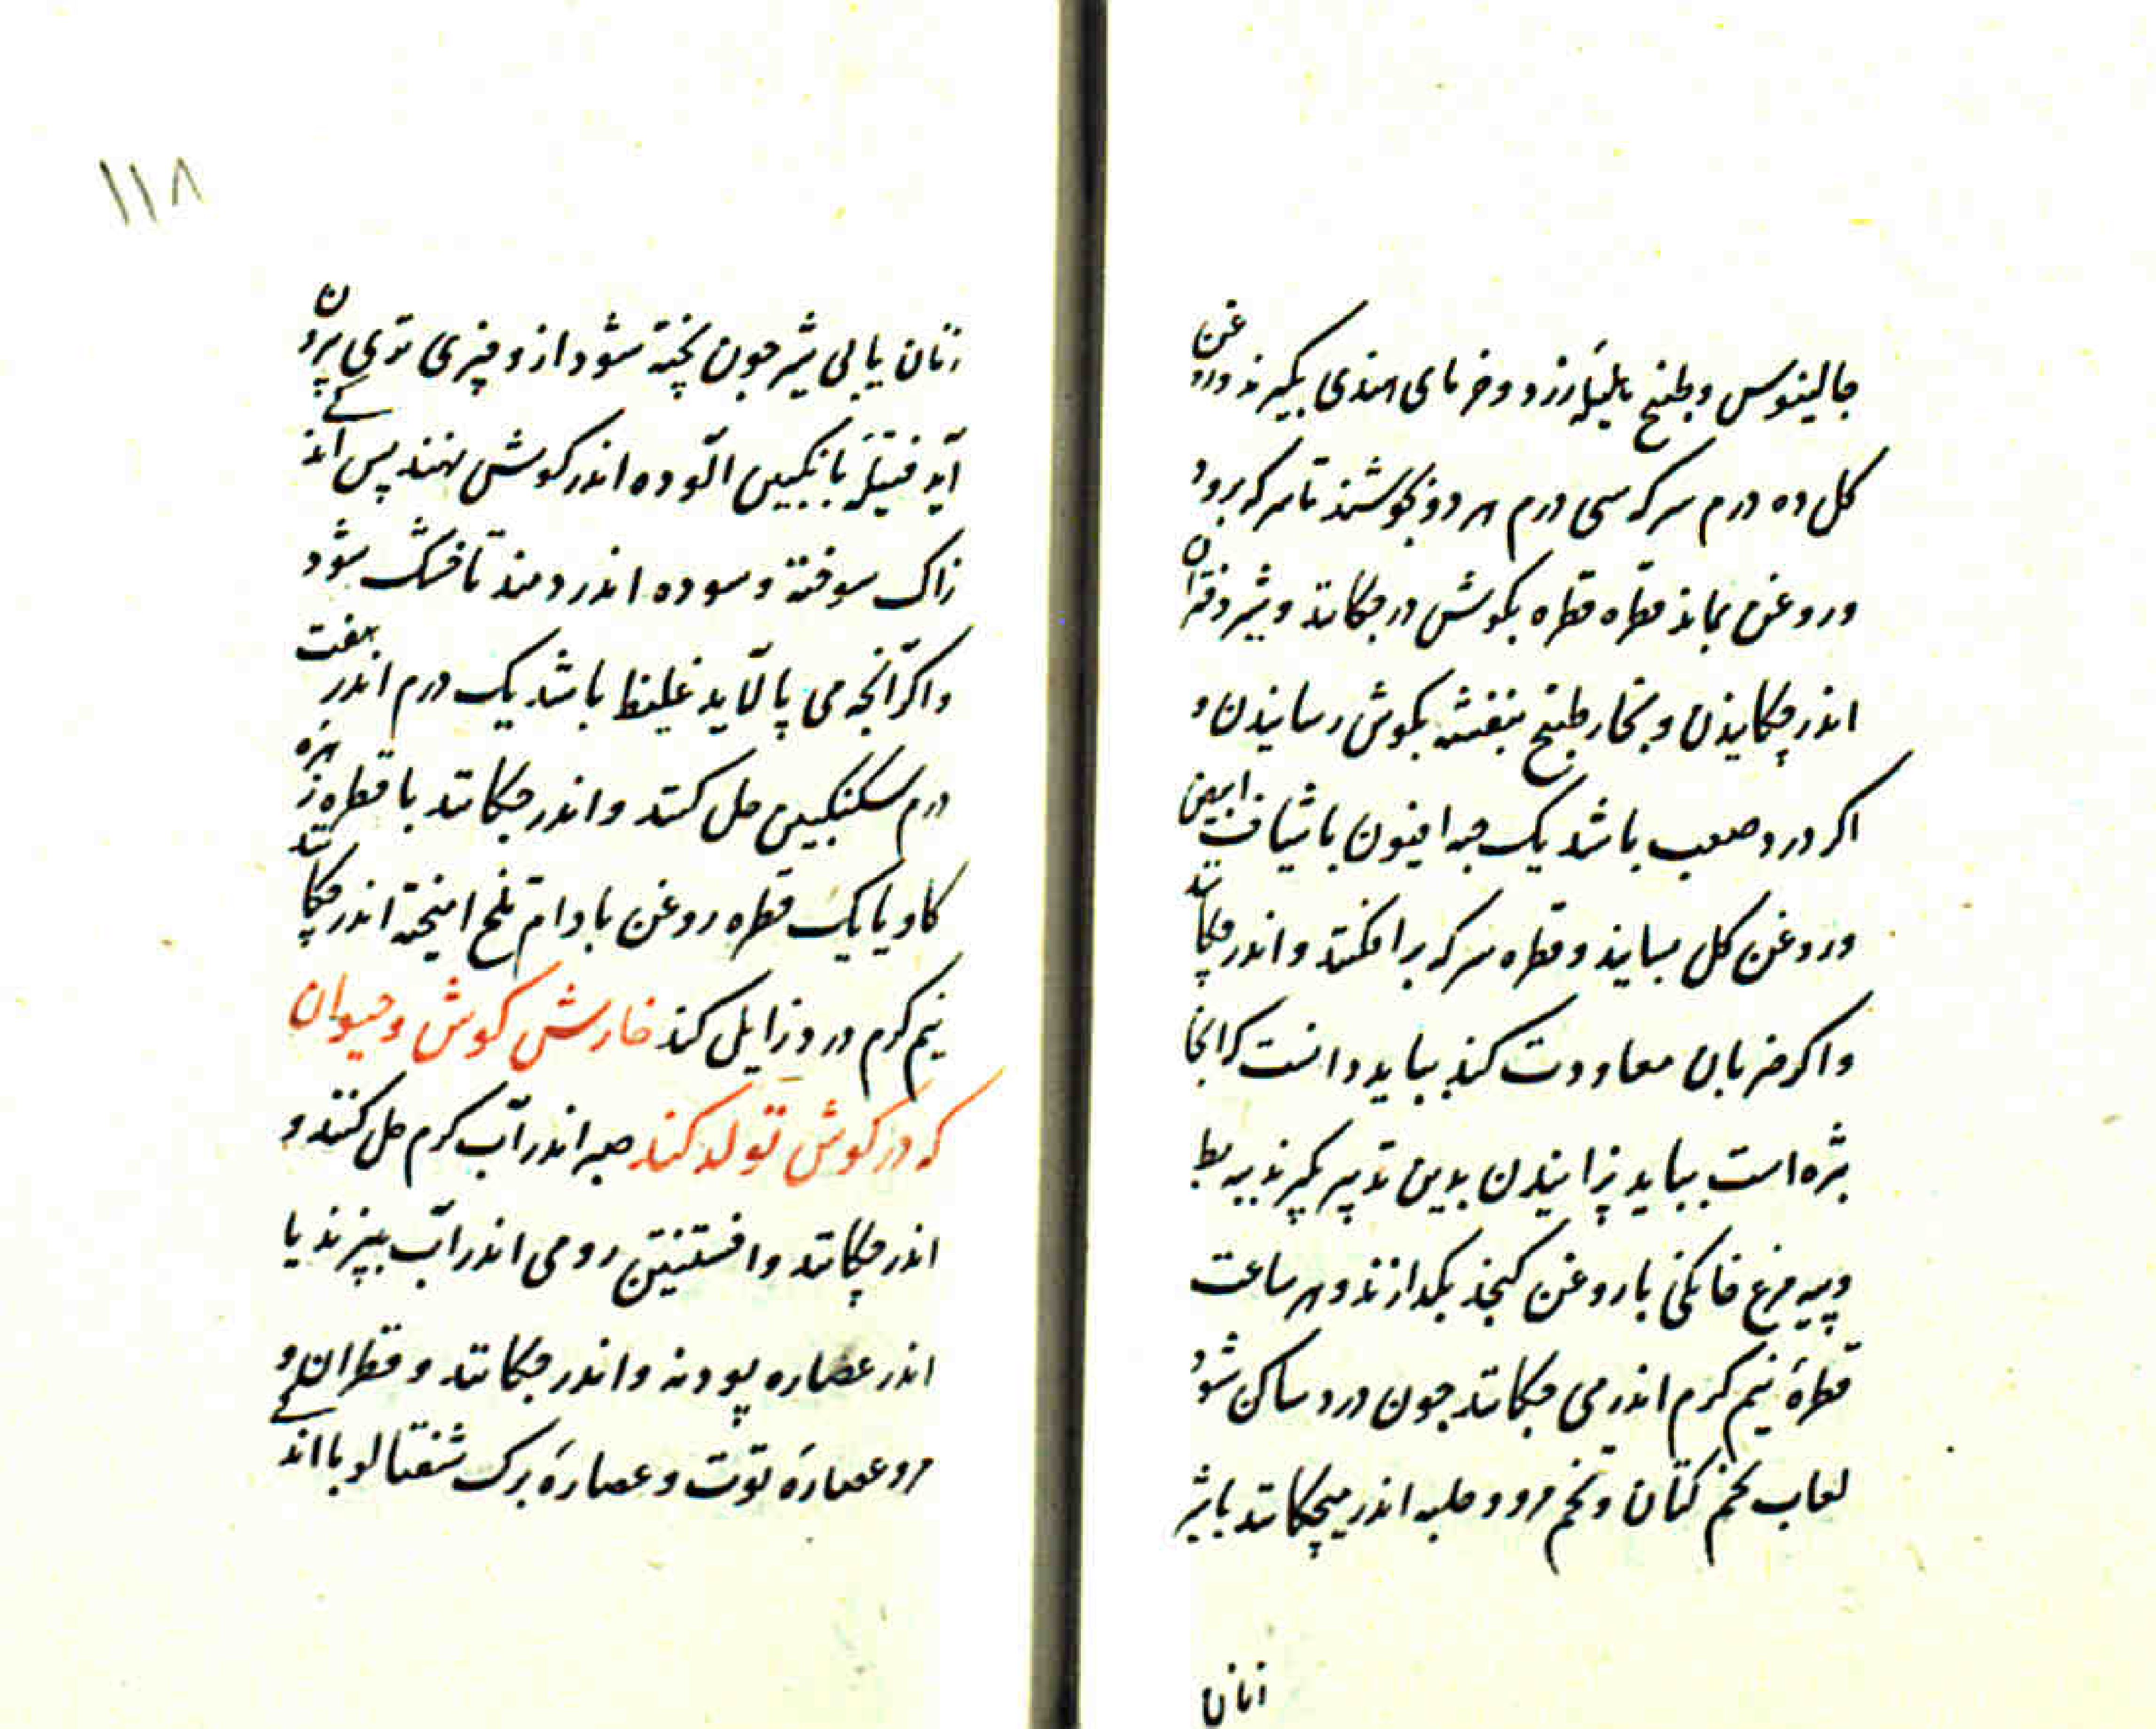 جالینوس و بطبیخ هلیلهٔ زرد و خرمای هندی بگیرند و روغن
کل ده درم سرکه سی درم هر دو بجوشند تا سرکه برود
و روغن بماند قطره قطره بکوش در چکانند و شیر دختران
اندر چکانیدن و بخار طبیخ بنفشه بکوش رسانیدن و
اکر درد صعب باشد یک حبه افیون با شیاف ابیض
و روغن کل بسایند و قطره سرکه برافکنند و اندر چکانند
و اکر ضربان معاودت کند بباید دانست که آنجا
بثره است بباید پزانیدن بدین تدبیر بکیرند پیه بط
و پیه مرغ خانکی با روغن کنجد بکدازند و هر ساعت
قطرهٔ نیم کرم اندر می چکانند جون درد ساکن شود
لعاب تخم کتان و تخم مرو و حلبه اندر میچکانند با شیر
زنان
۱۱۸
زنان یا بی شیر جون پخته شود از و چیزی تری بیرون
آید فتیلهٔ بانکبین آلوده اندر کوش نهند پس اندکی
زاک سوخته و سوده اندر دمند تا خشک شود
و اکر آنجه می پالاید غلیظ باشد یک درم اندر هفت
درم سکنکبین حل کنند و اندر چکانند با قطره زهره
کاو یا یک قطره روغن بادام تلخ امیخته اندر چکانند
نیم کرم درد زایل کند خارش کوش و حیوان
که در کوش تولد کند صبر اندر آب کرم حل کنند و
اندر چکانند و افسنتین رومی اندر آب بپزند یا
اندر عصاره پودنه و اندر چکانند و قطران و
مرو عصارهٔ توت و عصارهٔ برک شفتالو با اندکی